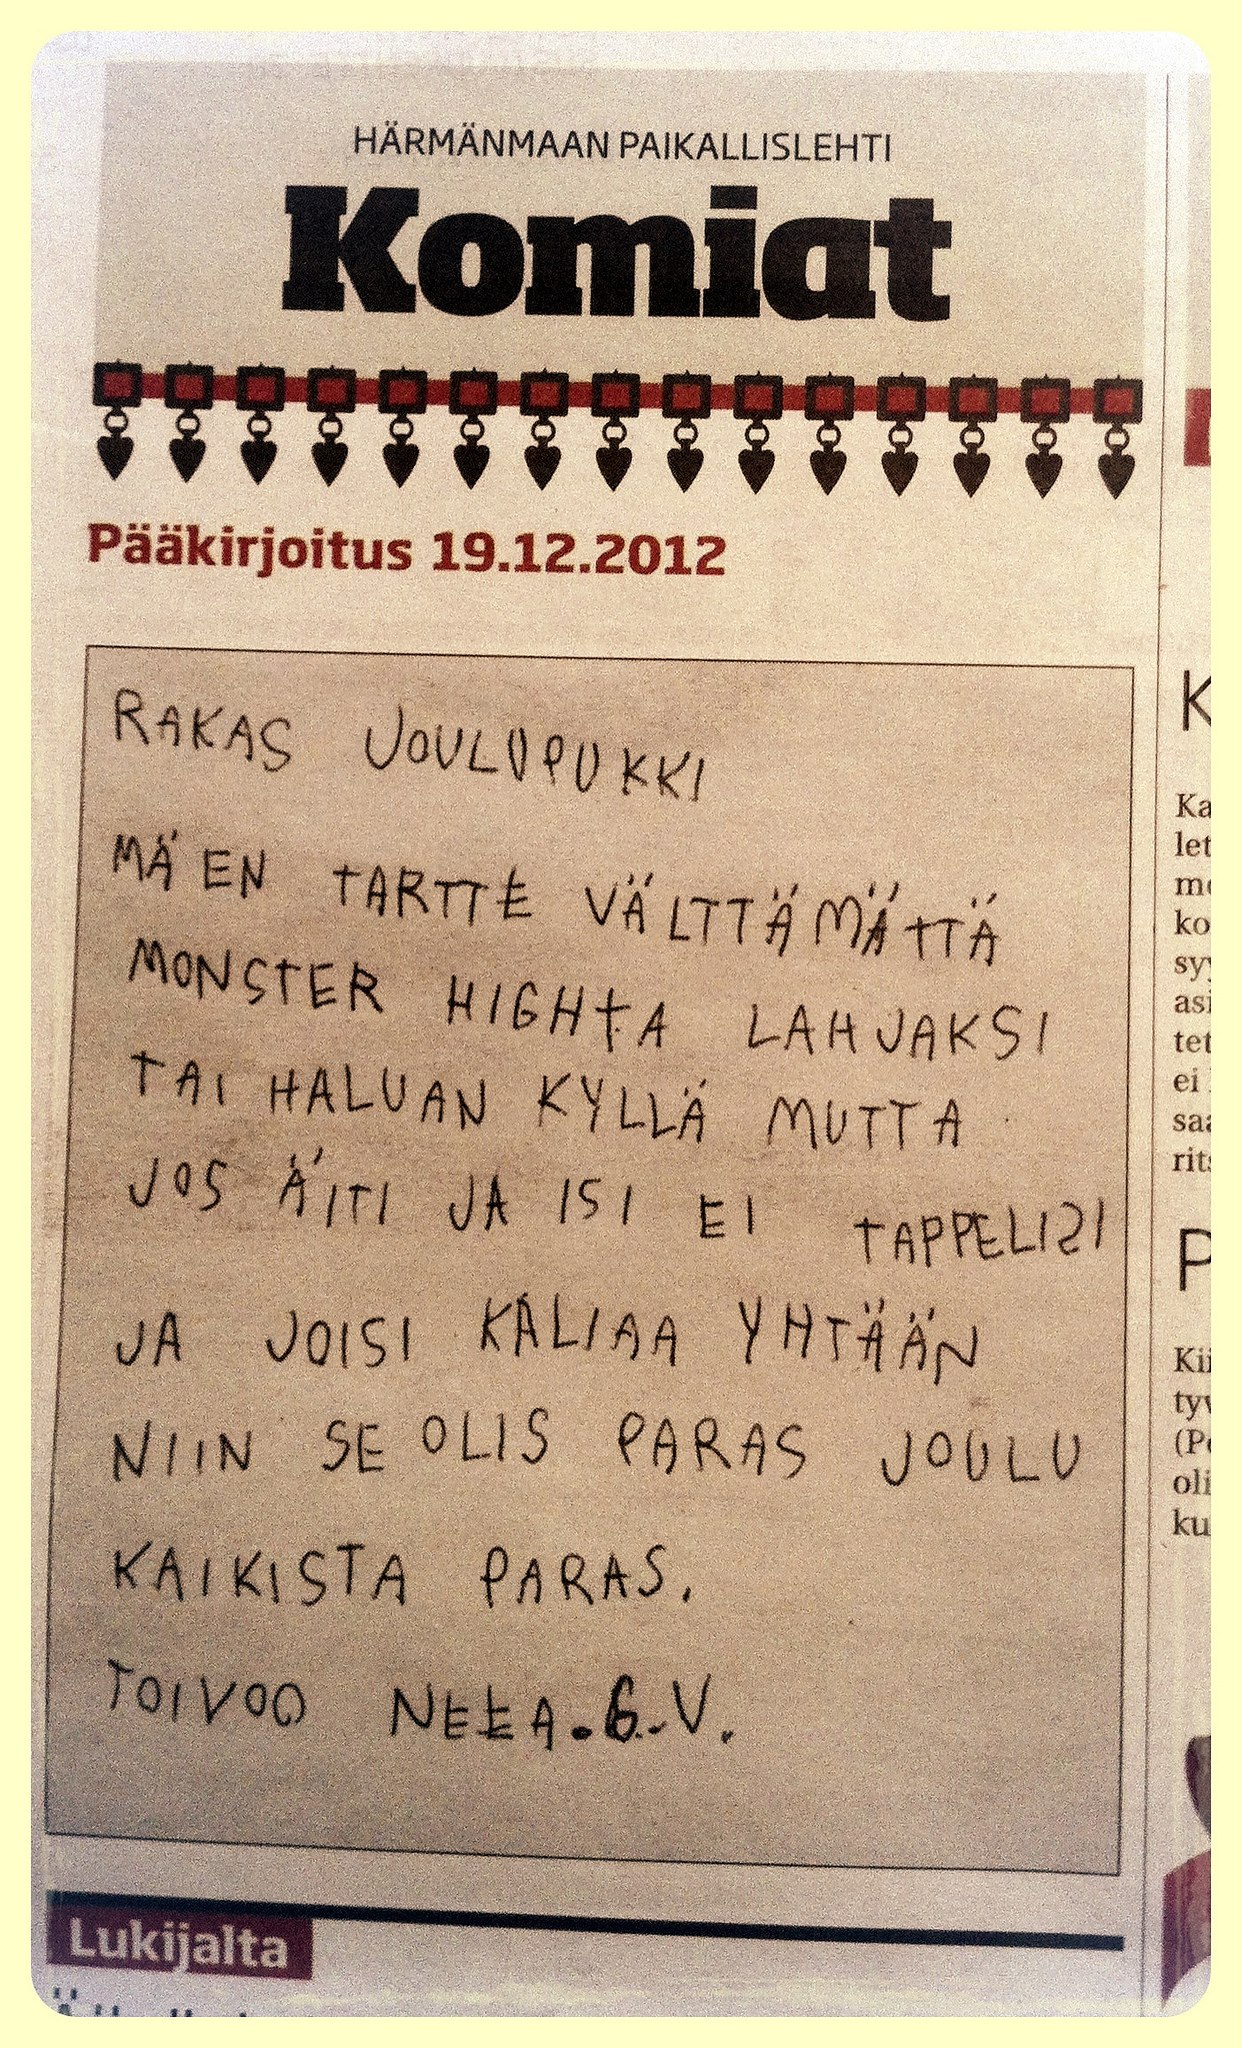 HÄRMÄNMAAN PAIKALLISLEHTI
Komiat
Pääkirjoitus 19.12.2012
RAKAS JOULUPUKKI
MÄ EN TARTTE VÄLTTÄMÄTTÄ
MONSTER HIGHTA LAHJAKSI
TAI HALUAN KYLLÄ MUTTA
JOS ÄITI JA ISI EI TAPPELISI
JA JOISI KALIAA YHTÄÄN
NIIN SE OLIS PARAS JOULU
KAIKISTA PARAS.
TOIVOO NEEA. 6.V.
Lukijalta
K
Ka
let
mo
ko
syy
asi
tet
ei
saa
rits
P
Kii
tyv
(Pe
oli
ku